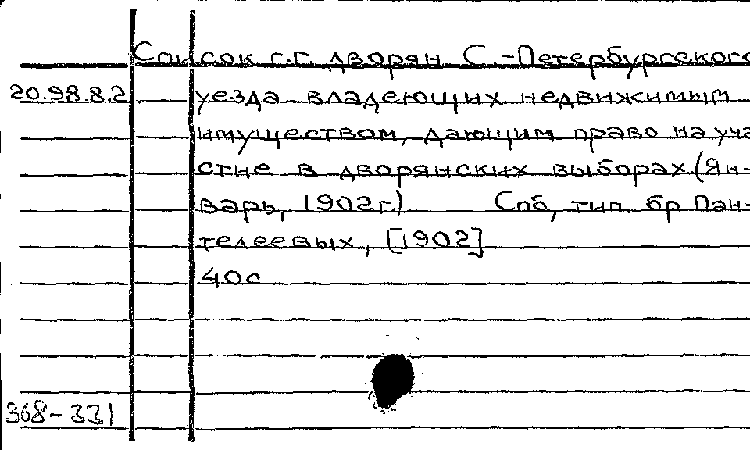 Список г.г. дворян С.-Петербургского
20.98.8.2 уезда владеющих недвижимым
имуществом, дающим право на уча
стие в дворянских выборах (Ян-
варь, 1902г.) Спб, тип. бр Пан-
телеевых, [1902]
40с
368-331